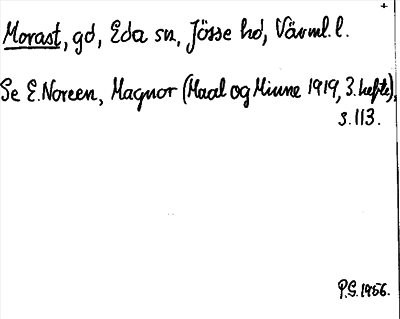 Morast, gd, Eda sn, Jösse hd, Värml. l.
Se E. Noreen, Magnor (Maal og Minne 1919, 3. hefte),
s. 113.
P.G. 1956.